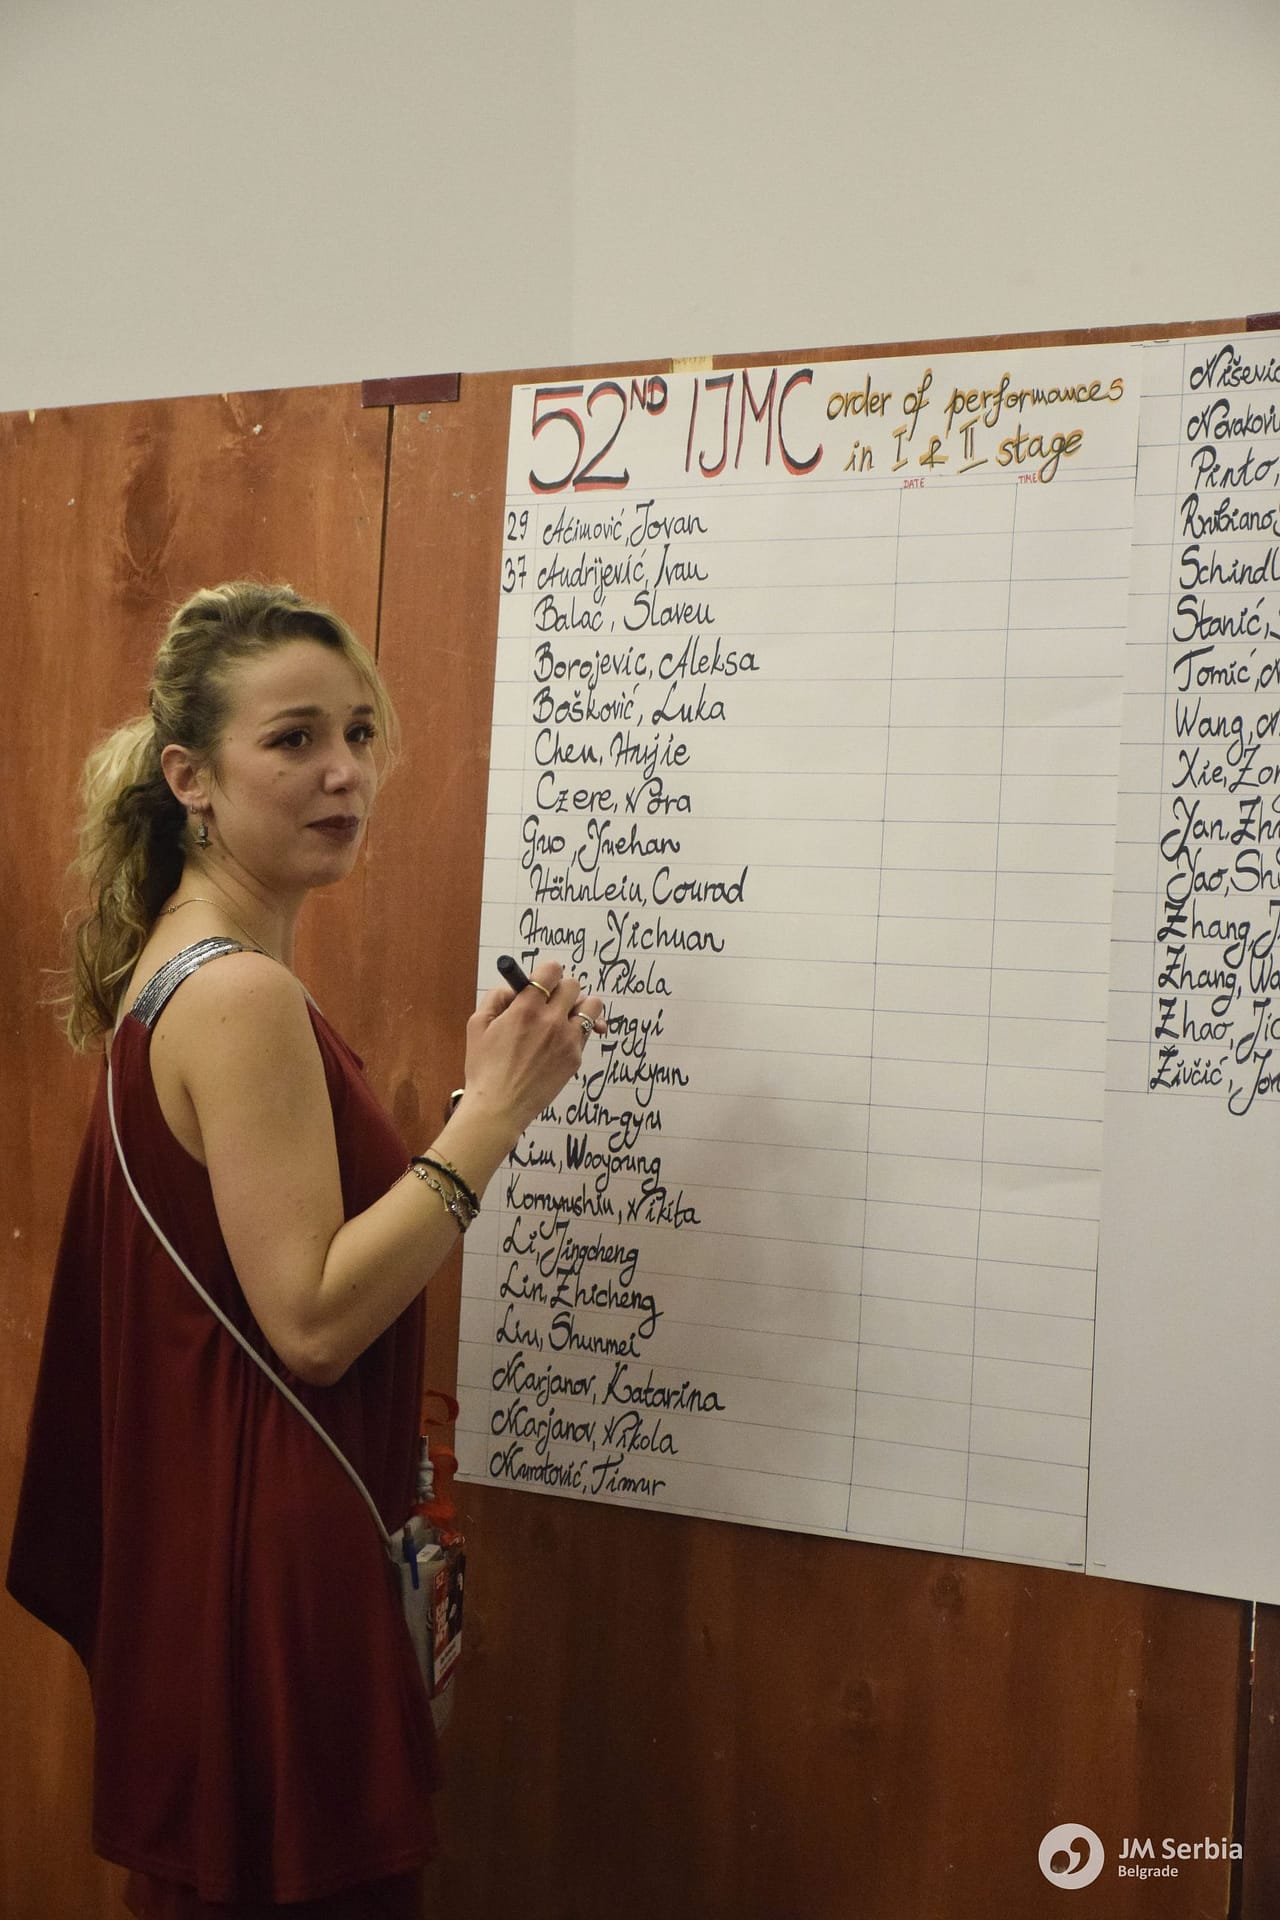 52ND IJMC order of performances
in I & II stage
DATE TIME
29 Aćimović, Jovan
37 Andrijević, Ivan
Balać, Slaven
Borojevic, Aleksa
Bošković, Luka
Chen, Hujie
Czere, Nóra
Guo, Yuehan
Hähnlein, Conrad
Huang, Yichuan
Nikola
Hongyi
Jinkyun
Min-gyu
Kim, Wooyoung
Kornyushin, Nikita
Li, Jingcheng
Lin, Zhicheng
Liu, Shunmei
Marjanov, Katarina
Marjanov, Nikola
Muratović, Timur
Pinto,
Stanić,
Tomić,
Wang,
Xie,
Yan,
Yao,
Zhang,
Zhang,
Zhao,
Živčić,
JM Serbia
Belgrade